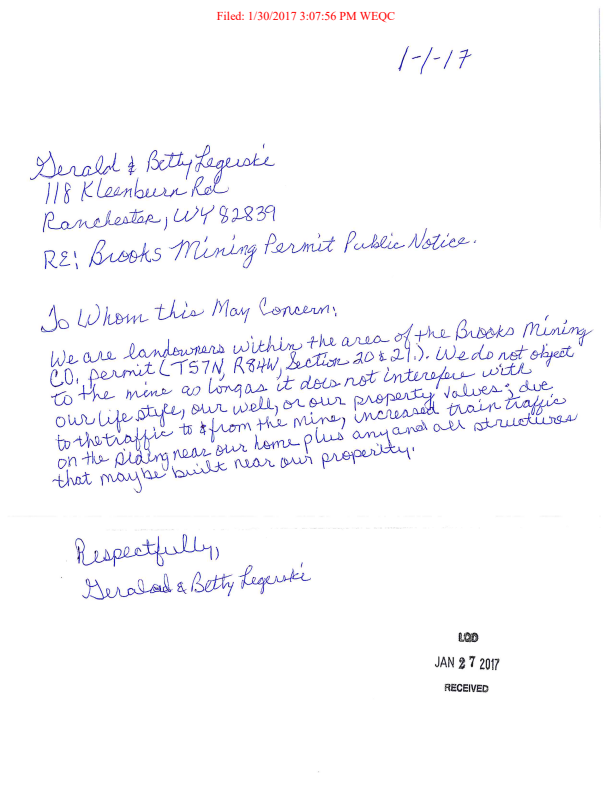 Filed: 1/30/2017 3:07:56 PM WEQC
1-1-17
Gerald & Betty Legerski
118 Kleenburn Rd
Ranchester, WY 82839
RE: Brooks Mining Permit Public Notice.
To Whom this May Concern:
We are landowners within the area of the Brooks Mining
CO. permit (T57N, R84W, Section 20 & 21.). We do not object
to the mine as long as it does not interefere with
our life style, our well, or our property values; due
to the traffic to & from the mine, increased train traffic
on the siding near our home plus any and all structures
that maybe built near our properity.
Respectfully,
Gerald & Betty Legerski
LQD
JAN 27 2017
RECEIVED